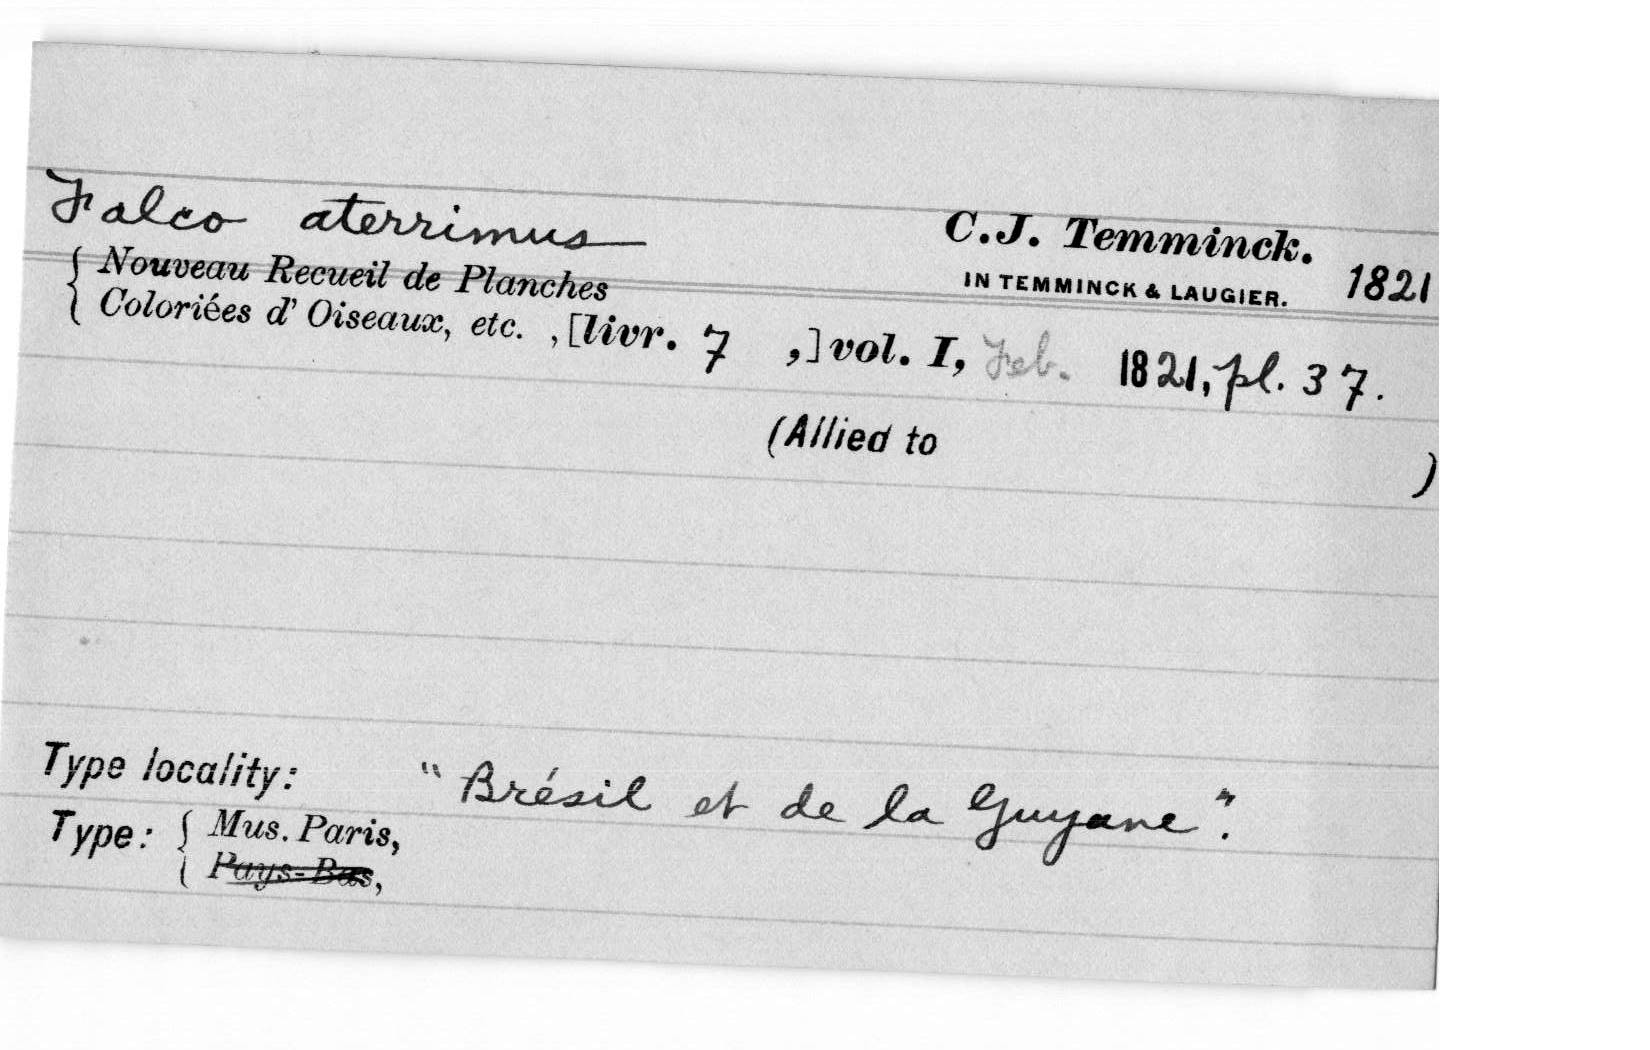 Falco aterrimus
C.J. Temminck.
IN TEMMINCK & LAUGIER. 1821
{ Nouveau Recueil de Planches
Coloriées d' Oiseaux, etc. , [livr. 7 ,] vol. I, Feb. 1821, pl. 37.
(Allied to )
Type locality: "Brésil et de la Guyane".
Type: { Mus. Paris,
Pays-Bas,